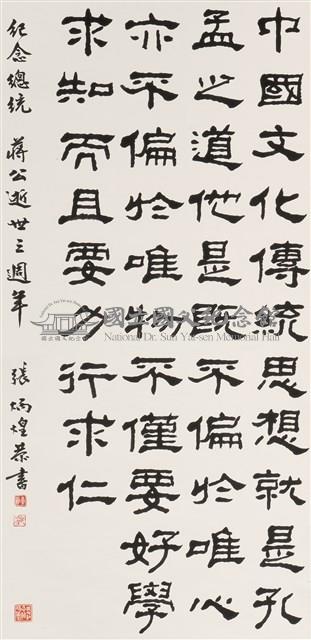 中國文化傳統思想就是孔
孟之道他是既不偏於唯心
亦不偏於唯物不僅要好學
求知而且要力行求仁
紀念總統 蔣公逝世三週年 張炳煌恭書
國立國父紀念館
National Dr. Sun Yat-sen Memorial Hall